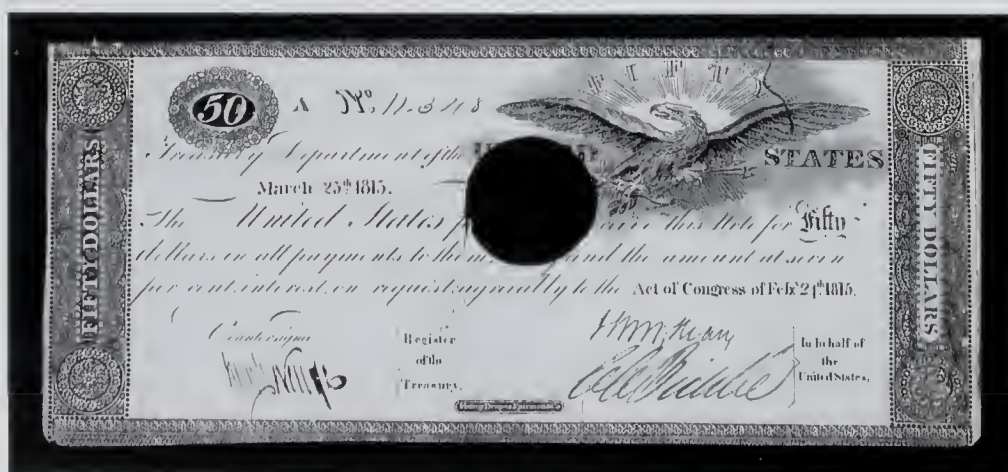 FIFTY
50 A No. 11.3
Treasury Department of the STATES
March 25th 1815.
The United States this Note for Fifty
dollars in all payments to them and the amount at seven
per cent. interest, on request, agreeably to the Act of Congress of Feby. 24th 1815.
Countersigned
Register
of the
Treasury.
In behalf of
the
United States.
FIFTY DOLLARS
FIFTY DOLLARS